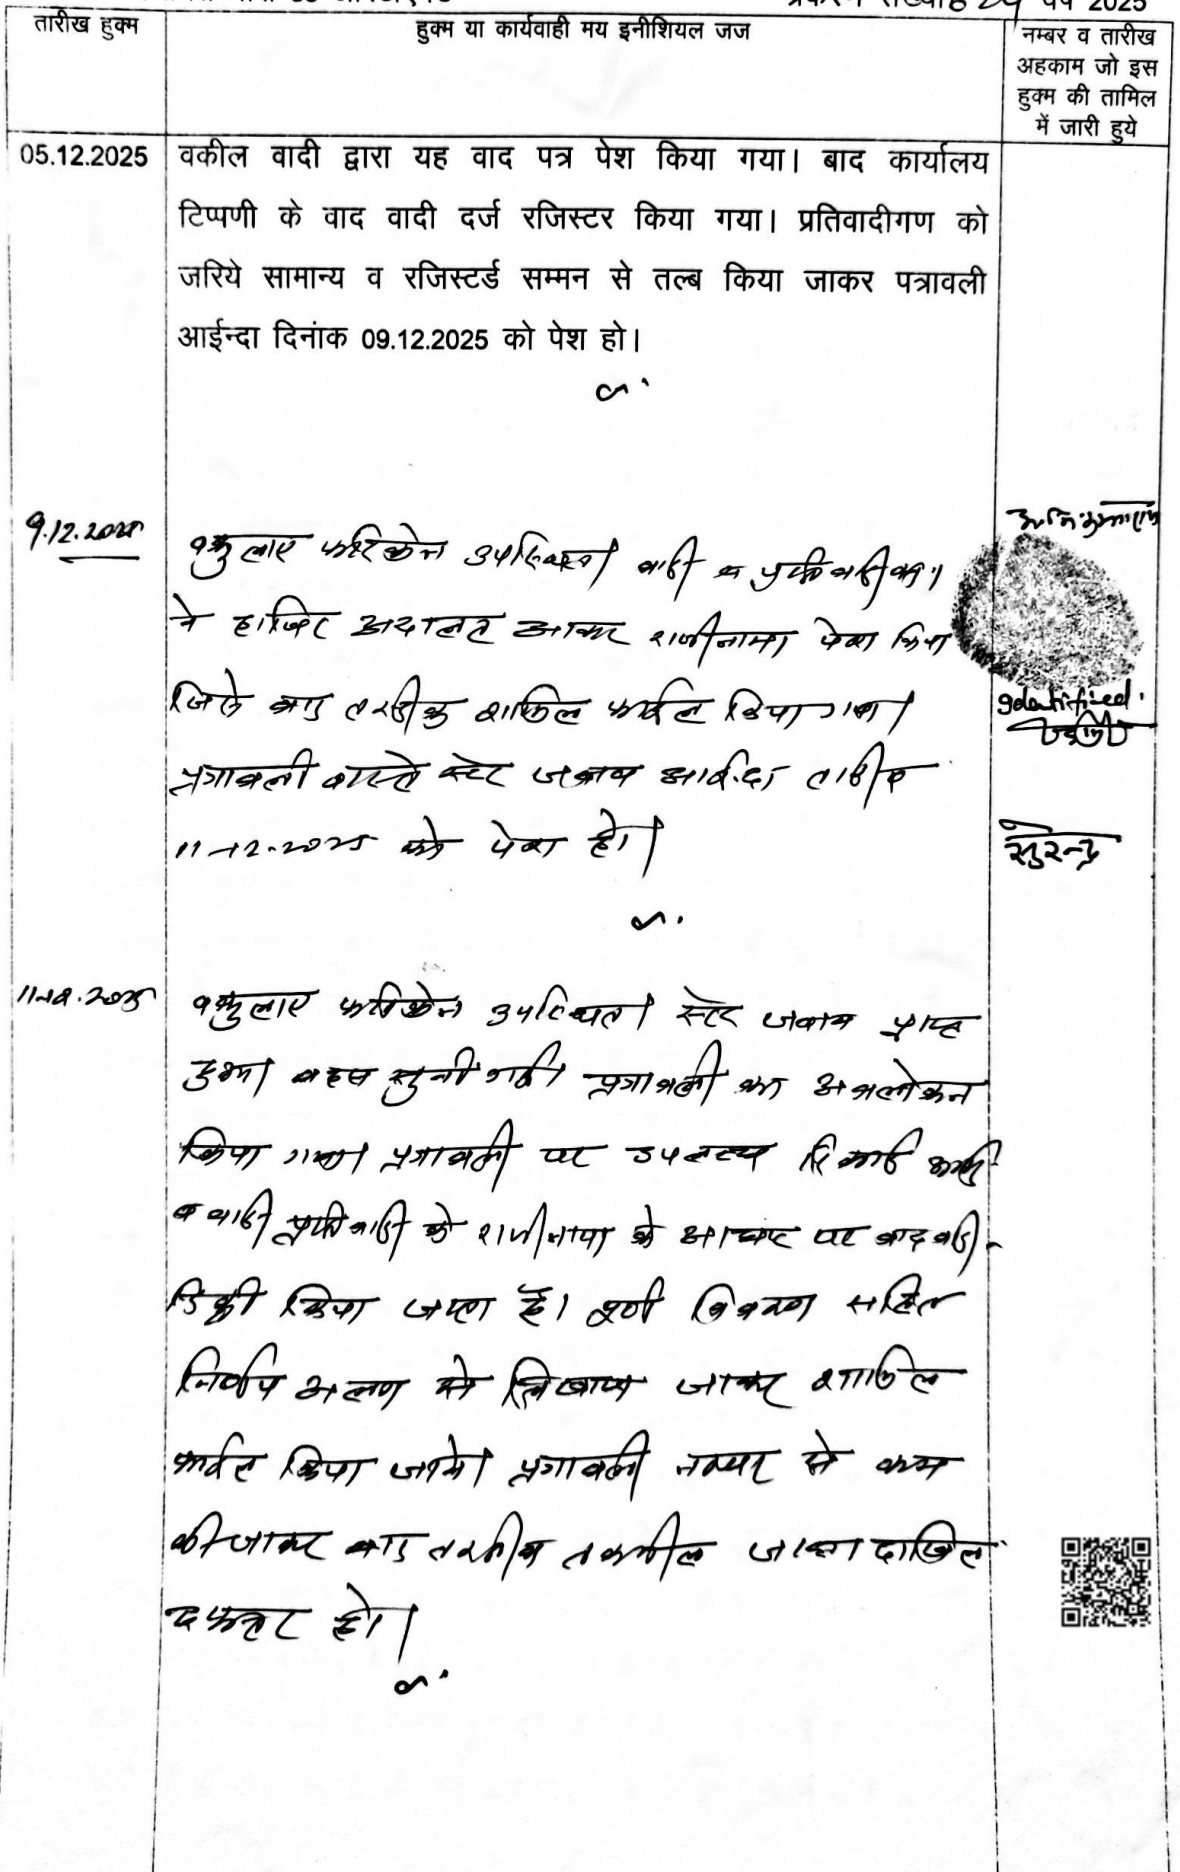 वर्ष 2025
तारीख हुक्म
हुक्म या कार्यवाही मय इनीशियल जज
नम्बर व तारीख
अहकाम जो इस
हुक्म की तामिल
में जारी हुये
05.12.2025
वकील वादी द्वारा यह वाद पत्र पेश किया गया। बाद कार्यालय
टिप्पणी के वाद वादी दर्ज रजिस्टर किया गया। प्रतिवादीगण को
जरिये सामान्य व रजिस्टर्ड सम्मन से तल्ब किया जाकर पत्रावली
आईन्दा दिनांक 09.12.2025 को पेश हो।
9.12.2025
वकुलाए फरिकेन उपस्थित। वादी व प्रतिवादीगण
ने हाजिर अदालत आकर राजीनामा पेश किया
जिसे बाद तस्दीक शामिल फाईल किया गया।
पत्रावली वास्ते स्टेट जवाब आईन्दा तारीख
11-12-2025 को पेश हो।
Identified
सुरेन्द्र
11-12-2025
वकुलाए फरिकेन उपस्थित। स्टेट जवाब प्राप्त
हुआ। बहस सुनी गई। पत्रावली का अवलोकन
किया गया। पत्रावली पर उपलब्ध रिकार्ड
व वादी प्रतिवादी के राजीनामा के आधार पर वाद वादी
डिक्री किया जाता है। पूर्ण विवरण सहित
निर्णय अलग से लिखाया जाकर शामिल
फाईल किया जावे। पत्रावली नम्बर से कम
की जाकर बाद तरतीब तकमील जाब्ता दाखिल
दफ्तर हो।